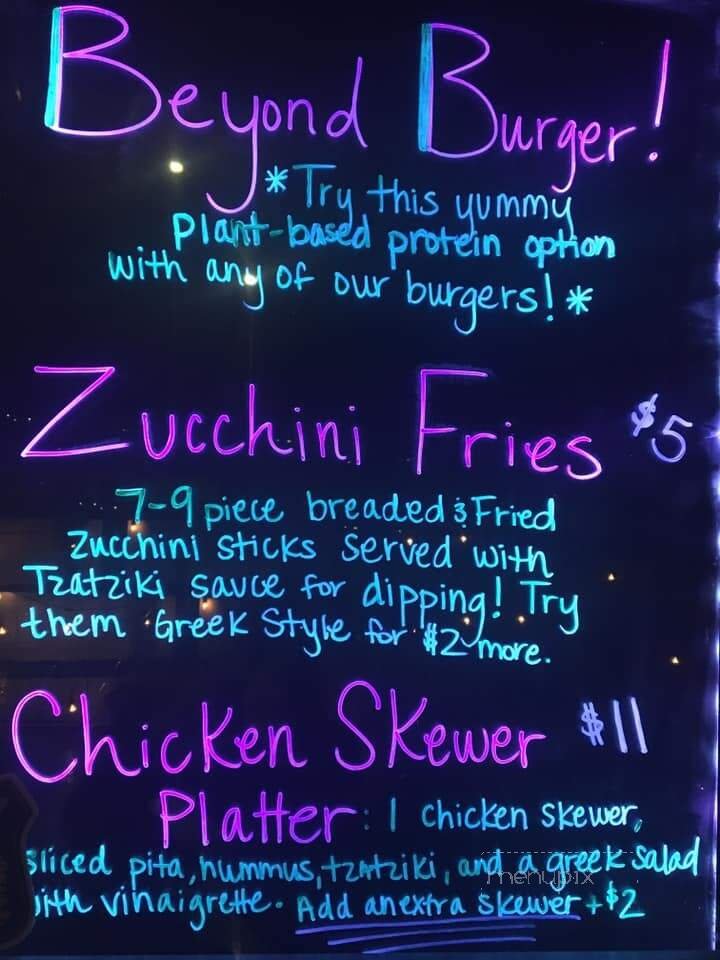 Beyond Burger!
*Try this yummy
plant-based protein option
with any of our burgers!*
Zucchini Fries $5
7-9 piece breaded & Fried
Zucchini sticks served with
Tzatziki sauce for dipping! Try
them Greek Style for $2 more.
Chicken Skewer $11
Platter: 1 chicken skewer,
sliced pita, hummus, tzatziki, and a greek salad
with vinaigrette. Add an extra skewer + $2
menupix